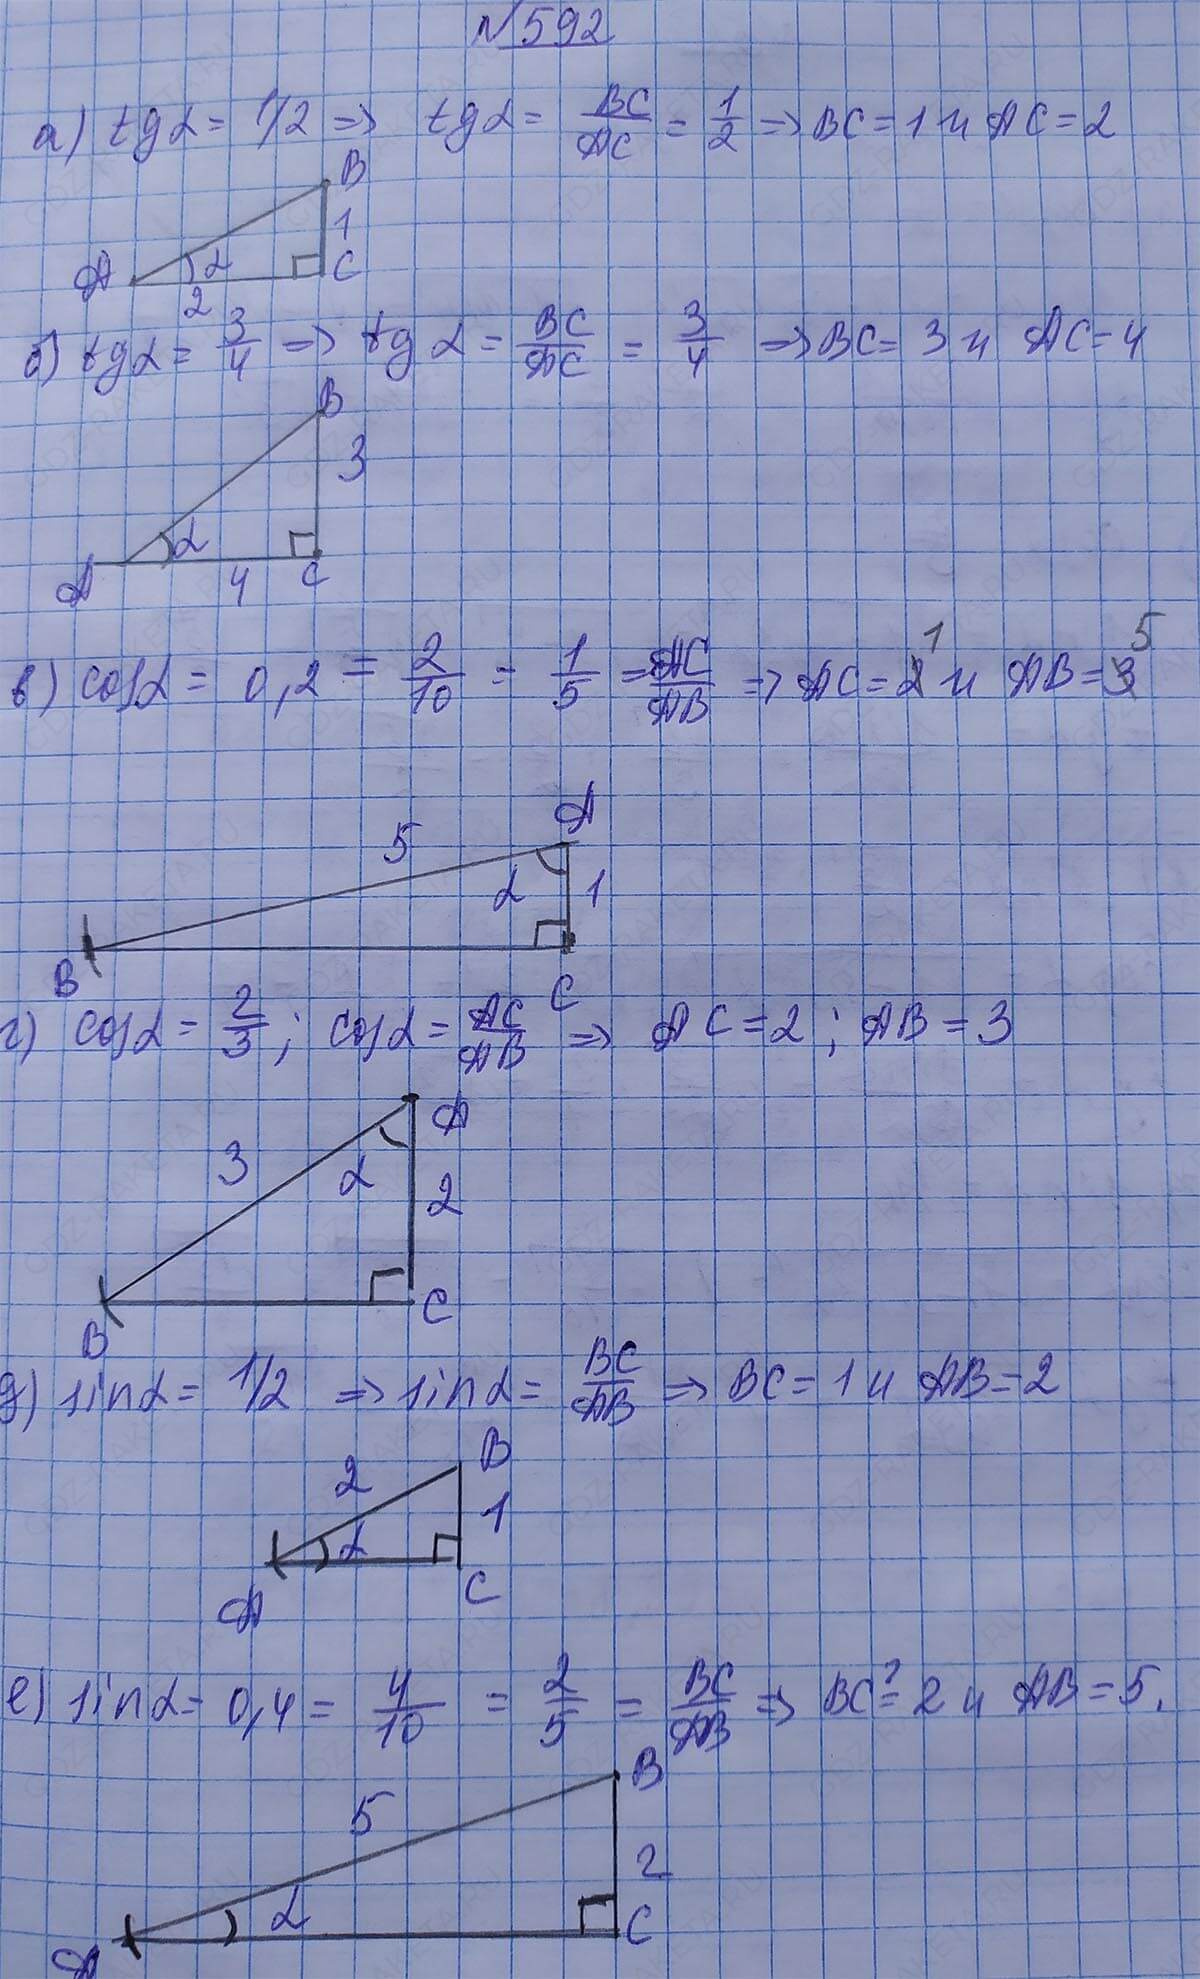 №592
а) tgα = 1/2 => tgα = BC/AC = 1/2 => BC = 1 и AC = 2
B
1
A α C
2
б) tgα = 3/4 => tgα = BC/AC = 3/4 => BC = 3 и AC = 4
B
3
α
A 4 C
в) cosα = 0,2 = 2/10 = 1/5 = AC/AB => AC = 1 и AB = 5
A
5
α 1
B C
г) cosα = 2/3; cosα = AC/AB => AC = 2; AB = 3
A
3 α
2
B C
д) sinα = 1/2 => sinα = BC/AB => BC = 1 и AB = 2
B
2
α 1
A C
е) sinα = 0,4 = 4/10 = 2/5 = BC/AB => BC = 2 и AB = 5.
B
5
2
α C
A